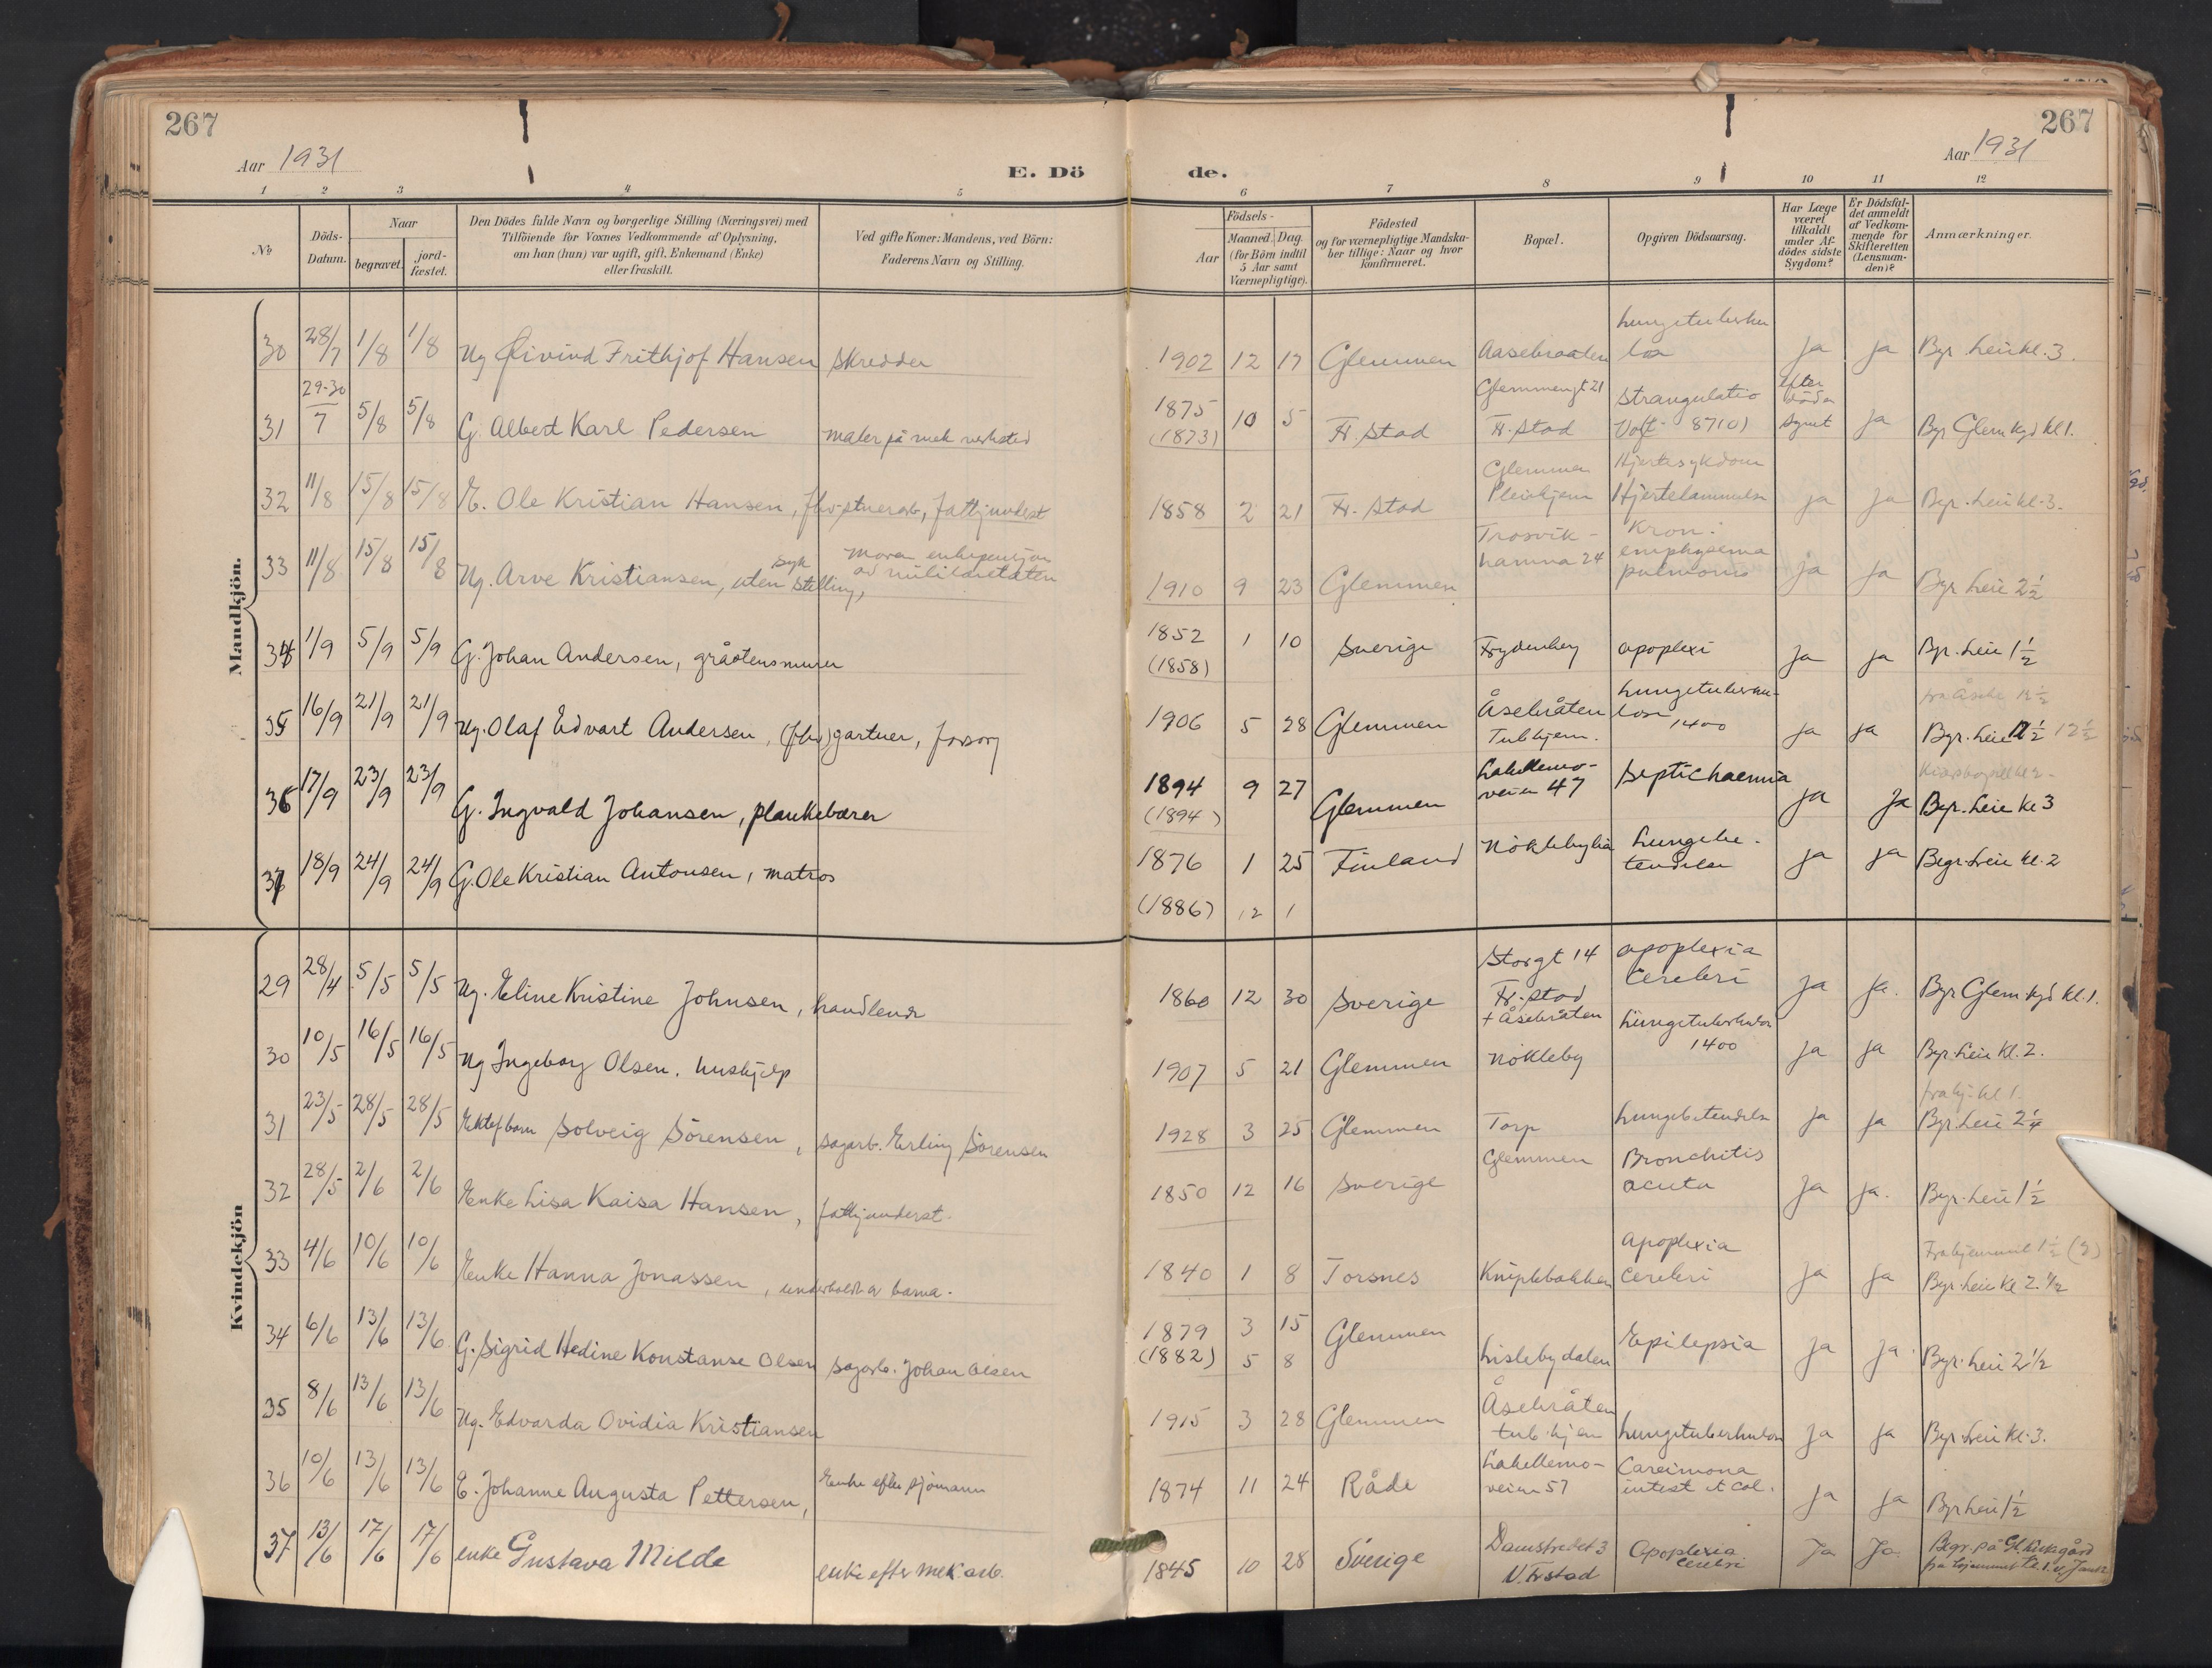 267
267
Aar 1931
E. Dö
de.
Aar 1931
1 2 3 4 5 6 7 8 9 10 11 12
No
Döds-
Datum.
Naar
begravet.
jord-
fæstet.
Den Dödes fulde Navn og borgerlige Stilling (Næringsvei) med
Tilföiende for Voxnes Vedkommende af Oplysning,
om han (hun) var ugift, gift, Enkemand (Enke)
eller fraskilt.
Ved gifte Koner: Mandens, ved Börn:
Faderens Navn og Stilling.
Födsels-
Aar
Maaned. Dag.
(for Börn indtil
5 Aar samt
Værnepligtige).
Födested
og for værnepligtige Mandska-
ber tillige: Naar og hvor
konfirmeret.
Bopæl.
Opgiven Dödsaarsag.
Har Læge
været
tilkaldt
under Af-
dödes sidste
Sygdom?
Er Dödsfal-
det anmeldt
af Vedkom-
mende for
Skifteretten
(Lensman-
den)?
Anmærkninger.
Mandkjön.
30 28/7 1/8 1/8 Ug Øivind Frithjof Hansen skredder 1902 12 17 Glemmen Aasebraaten Lungetuberku
lose ja ja Bgr. Leie kl. 3.
31 29-30/7 5/8 5/8 G. Albert Karl Pedersen maler på mek verksted 1875 (1873) 10 5 Fr. stad Glemmengt 21
Fr. stad strangulatio
8710) efter
döden
synet ja Bgr Glem kgd kl 1.
32 11/8 15/8 15/8 E. Ole Kristian Hansen, 1858 2 21 Fr. stad Glemmen
Pleiehjem Hjertesykdom
Hjertelammelse ja ja Bgr. Leie kl. 3.
33 11/8 15/8 15/8 Ug. Arve Kristiansen, uten stilling, syk 1910 9 23 Glemmen Trosvik-
24 Kron:
emphysema
pulmonis ja ja Bgr Leie 2½
34 1/9 5/9 5/9 G. Johan Andersen, gråstensmurer 1852 (1858) 1 10 Sverige Frydenberg apoplexi ja ja Bgr. Leie 1½
35 16/9 21/9 21/9 Ug. Olaf Edvart Andersen, (fhv) gartner, forsorg 1906 5 28 Glemmen Åsebråten
Tubhjem. Lungetuberku-
lose 1400 ja ja Bgr. Leie 12½
36 17/9 23/9 23/9 G. Ingvald Johansen, plankebærer 1894 (1894) 9 27 Glemmen Lahellemo-
veien 47 septichaemia ja ja Bgr. Leie kl 3
37 18/9 24/9 24/9 G. Ole Kristian Antonsen, matros 1876 1 25 Finland Nöklebylia Lungebe-
tendelse ja ja Begr. Leie kl. 2
(1886) 12 1
Kvindekjön
29 28/4 5/5 5/5 Ug. Eline Kristine Johnsen, handlende 1860 12 30 Sverige Storgt 14
Fr. stad
+ Åsebråten apoplexia
cerebri ja ja. Bgr Glem kgd kl. 1.
30 10/5 16/5 16/5 Ug Ingeborg Olsen. hushjelp 1907 5 21 Glemmen Nökleby Lungetuberkulose
1400 ja ja Bgr. Leie kl. 2.
31 23/5 28/5 28/5 Ektef barn Solveig Sörensen, sagarb. Erling Sörensen 1928 3 25 Glemmen Torp Lungebetendelse ja ja Bgr. Leie 2¼
32 28/5 2/6 2/6 Enke Lisa Kaisa Hansen, fattigunderst. 1850 12 16 Sverige Glemmen Bronchitis
acuta ja ja. Bgr. Leie 1½
33 4/6 10/6 10/6 Enke Hanna Jonassen, underholdt a barna. 1840 1 8 Torsnes Kniplebakken apoplexia
cerebri ja ja Bgr. Leie kl 2.½
34 6/6 13/6 13/6 G. Sigrid Hedine Konstanse Olsen sagarb. Johan Olsen 1879 3 15 Glemmen
(1882) 5 8 Lislebydalen Epilepsia ja ja. Bgr. Leie 2½
35 8/6 13/6 13/6 Ug. Edvarda Ovidia Kristiansen 1915 3 28 Glemmen Åsebråten
tub. hjem Lungetuberkulose ja ja Bgr. Leie kl. 3.
36 10/6 13/6 13/6 E. Johanne Augusta Pettersen, Enke efter sjömann 1874 11 24 Råde Lahellemo-
veien 57 Carcinoma
intest et col. ja ja Bgr Leie 1½
37 13/6 17/6 17/6 enke Gustava Milde enke efter mek. arb. 1845 10 28 Sverige Damstredet 3
V. Frstad Apoplexia
cerebri Ja Ja. Begr. på Gl. kirkegård